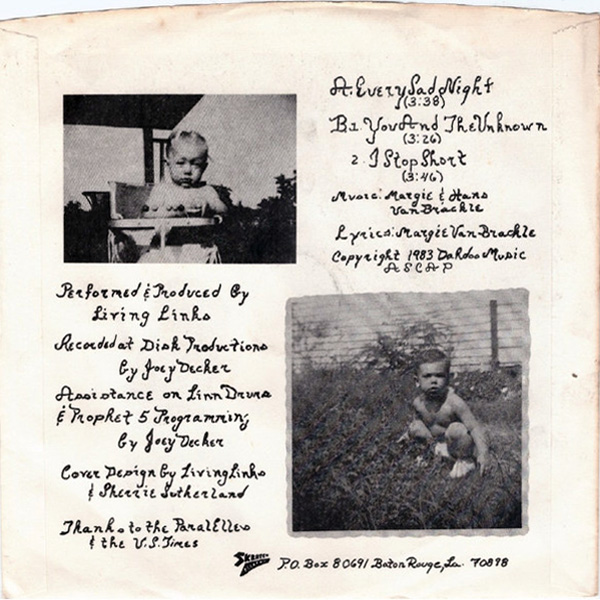 A. Every Sad Night
(3:38)
B1. You And The Unknown
(3:26)
2. I Stop Short
(3:46)
Music: Margie & Hans
Van Brackle
Lyrics: Margie Van Brackle
Copyright 1983 Dahdoo Music
ASCAP
Performed & Produced By
Living Links
Recorded at Disk Productions
by Joey Decker
Assistance on Linn Drums
& Prophet 5 Programming
by Joey Decker
Cover Design by Living Links
& Sherrie Sutherland
Thanks to the ParalElles
& the U.S. Times
P.O. Box 80691 Baton Rouge, La. 70898